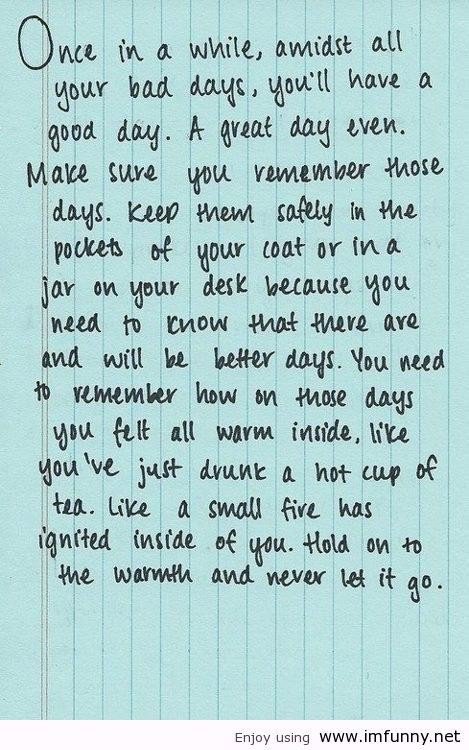 Once in a while, amidst all
your bad days, you'll have a
good day. A great day even.
Make sure you remember those
days. Keep them safely in the
pockets of your coat or in a
jar on your desk because you
need to know that there are
and will be better days. You need
to remember how on those days
you felt all warm inside, like
you've just drunk a hot cup of
tea. Like a small fire has
ignited inside of you. Hold on to
the warmth and never let it go.
Enjoy using www.imfunny.net